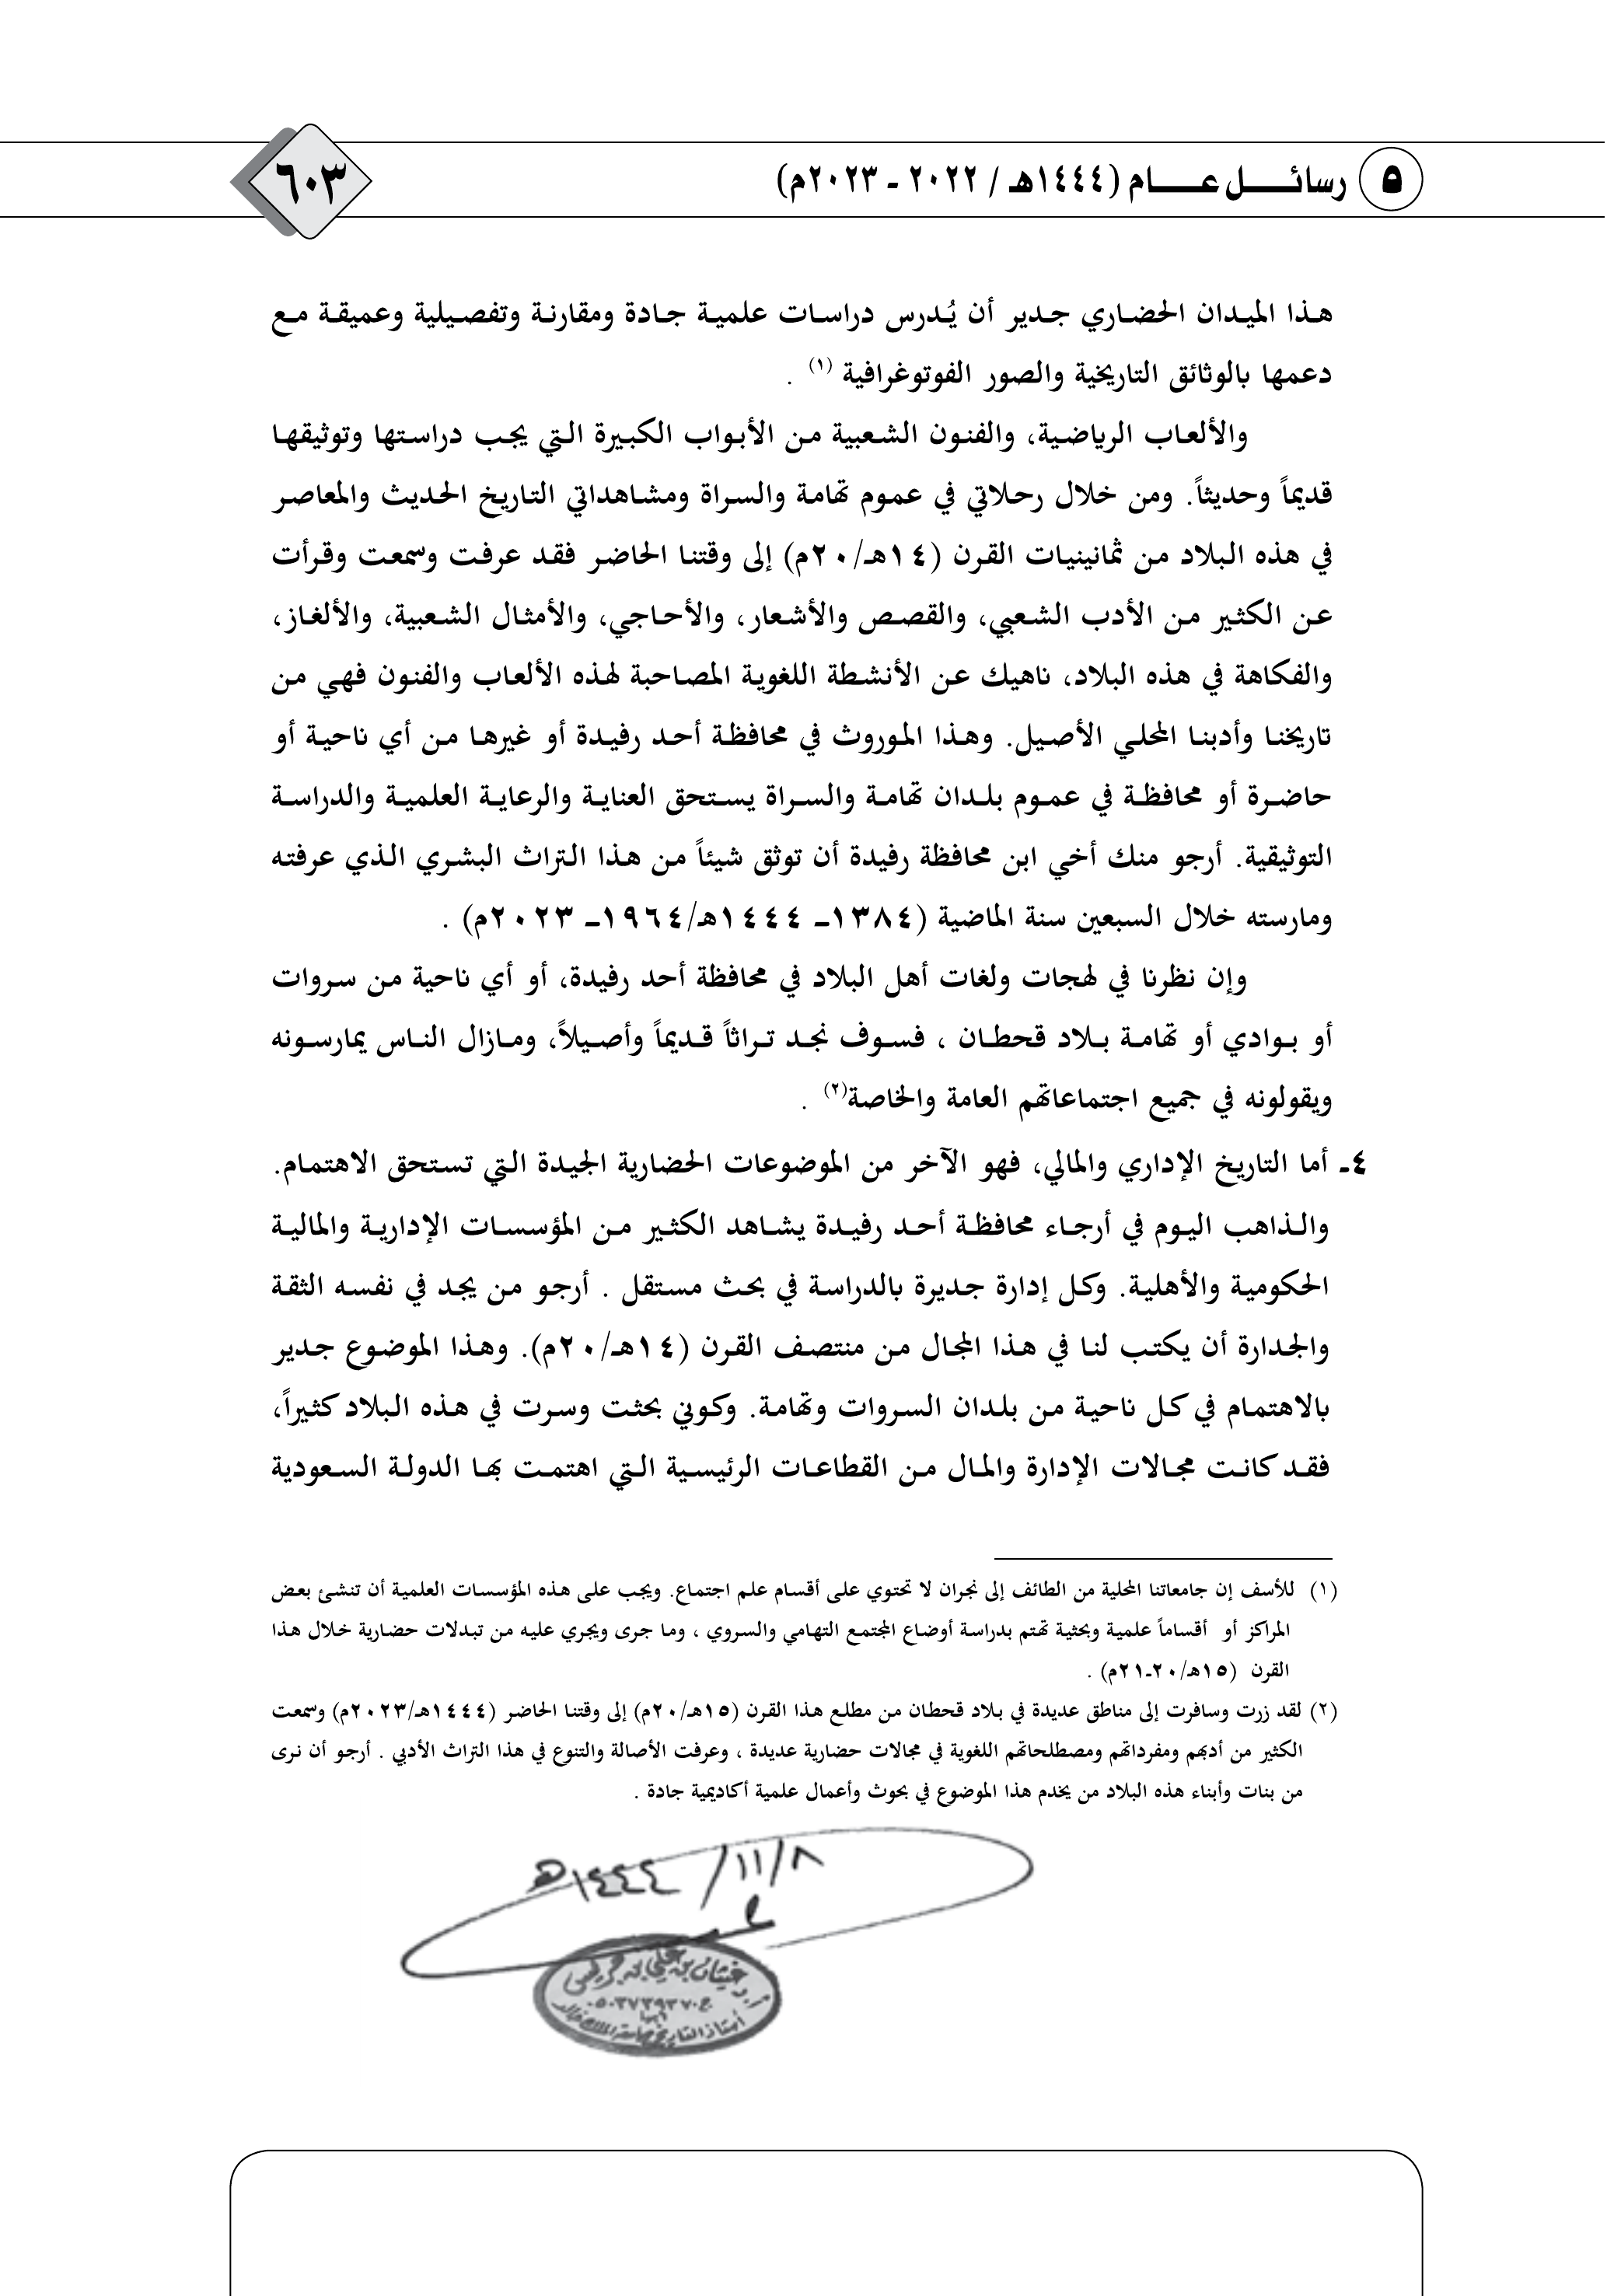 ٥ رسائـــــل عـــــام (١٤٤٤هـ / ٢٠٢٢ - ٢٠٢٣م)
٦٠٣
هذا الميدان الحضاري جدير أن يُدرس دراسات علمية جادة ومقارنة وتفصيلية وعميقة مع
دعمها بالوثائق التاريخية والصور الفوتوغرافية (١) .
والألعاب الرياضية، والفنون الشعبية من الأبواب الكبيرة التي يجب دراستها وتوثيقها
قديماً وحديثاً. ومن خلال رحلاتي في عموم تهامة والسراة ومشاهداتي التاريخ الحديث والمعاصر
في هذه البلاد من ثمانينيات القرن (١٤هـ/٢٠م) إلى وقتنا الحاضر فقد عرفت وسمعت وقرأت
عن الكثير من الأدب الشعبي، والقصص والأشعار، والأحاجي، والأمثال الشعبية، والألغاز،
والفكاهة في هذه البلاد، ناهيك عن الأنشطة اللغوية المصاحبة لهذه الألعاب والفنون فهي من
تاريخنا وأدبنا المحلي الأصيل. وهذا الموروث في محافظة أحد رفيدة أو غيرها من أي ناحية أو
حاضرة أو محافظة في عموم بلدان تهامة والسراة يستحق العناية والرعاية العلمية والدراسة
التوثيقية. أرجو منك أخي ابن محافظة رفيدة أن توثق شيئاً من هذا التراث البشري الذي عرفته
ومارسته خلال السبعين سنة الماضية (١٣٨٤ـ ١٤٤٤هـ/١٩٦٤ـ ٢٠٢٣م) .
وإن نظرنا في لهجات ولغات أهل البلاد في محافظة أحد رفيدة، أو أي ناحية من سروات
أو بوادي أو تهامة بلاد قحطان ، فسوف نجد تراثاً قديماً وأصيلاً، ومازال الناس يمارسونه
ويقولونه في جميع اجتماعاتهم العامة والخاصة(٢) .
٤ـ أما التاريخ الإداري والمالي، فهو الآخر من الموضوعات الحضارية الجيدة التي تستحق الاهتمام.
والذاهب اليوم في أرجاء محافظة أحد رفيدة يشاهد الكثير من المؤسسات الإدارية والمالية
الحكومية والأهلية. وكل إدارة جديرة بالدراسة في بحث مستقل . أرجو من يجد في نفسه الثقة
والجدارة أن يكتب لنا في هذا المجال من منتصف القرن (١٤هـ/٢٠م). وهذا الموضوع جدير
بالاهتمام في كل ناحية من بلدان السروات وتهامة. وكوني بحثت وسرت في هذه البلاد كثيراً،
فقد كانت مجالات الإدارة والمال من القطاعات الرئيسية التي اهتمت بها الدولة السعودية
(١) للأسف إن جامعاتنا المحلية من الطائف إلى نجران لا تحتوي على أقسام علم اجتماع. ويجب على هذه المؤسسات العلمية أن تنشئ بعض
المراكز أو أقساماً علمية وبحثية تهتم بدراسة أوضاع المجتمع التهامي والسروي ، وما جرى ويجري عليه من تبدلات حضارية خلال هذا
القرن (١٥هـ/٢٠-٢١م) .
(٢) لقد زرت وسافرت إلى مناطق عديدة في بلاد قحطان من مطلع هذا القرن (١٥هـ/٢٠م) إلى وقتنا الحاضر (١٤٤٤هـ/٢٠٢٣م) وسمعت
الكثير من أدبهم ومفرداتهم ومصطلحاتهم اللغوية في مجالات حضارية عديدة ، وعرفت الأصالة والتنوع في هذا التراث الأدبي . أرجو أن نرى
من بنات وأبناء هذه البلاد من يخدم هذا الموضوع في بحوث وأعمال علمية أكاديمية جادة .
٨/١١/١٤٤٤هـ
غيثان بن علي بن جريس
أستاذ التاريخ بجامعة الملك خالد